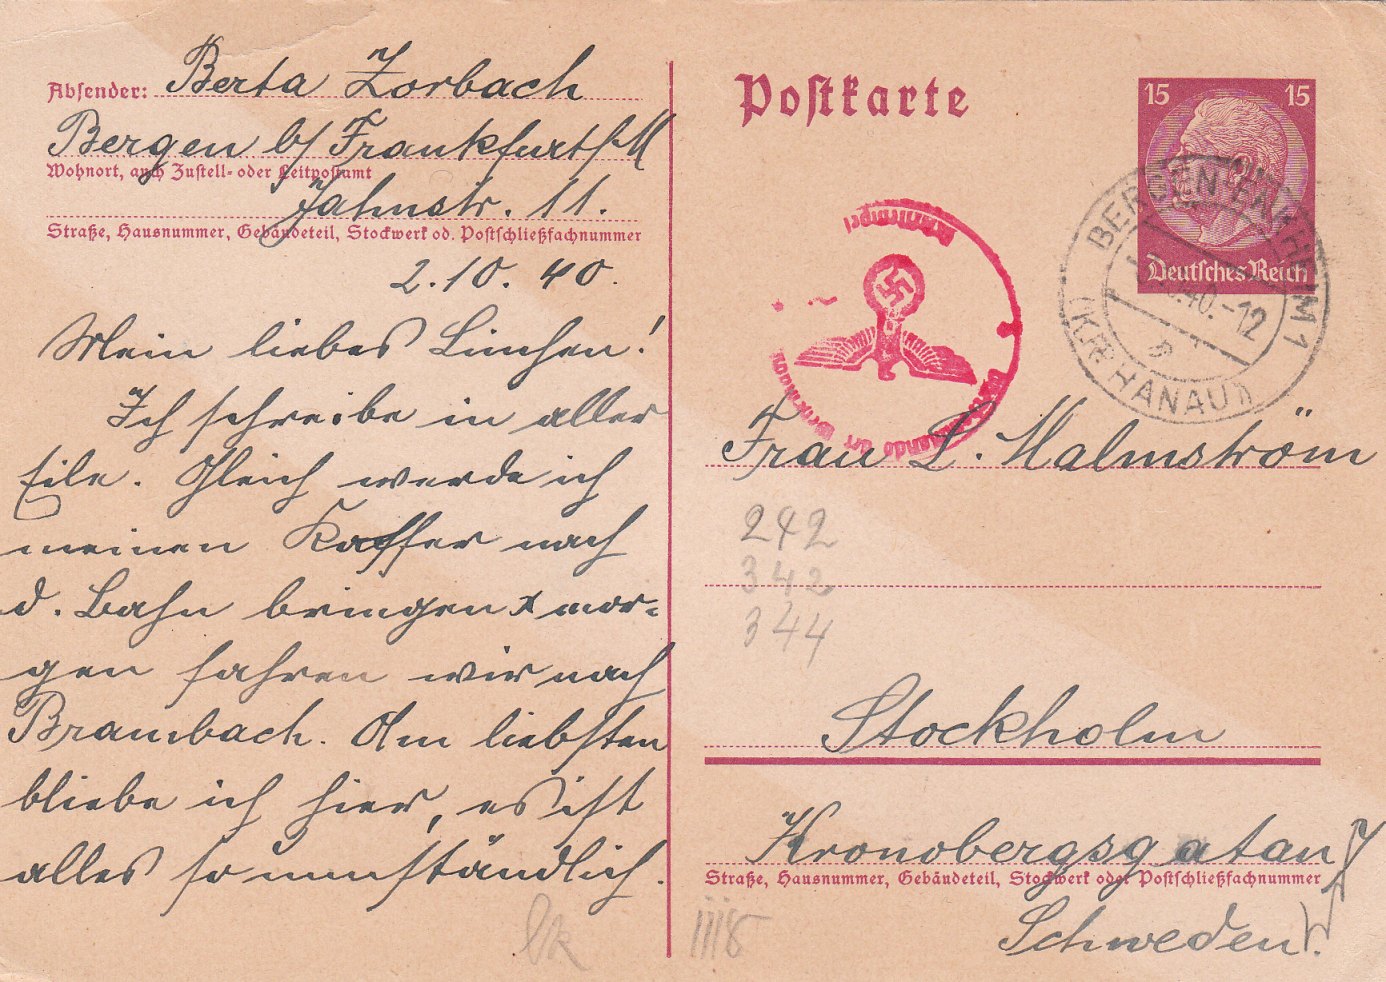 Absender: Berta Zorbach
Bergen b/ Frankfurt/M
Wohnort, auch Zustell- oder Leitpostamt
Jahnstr. 11.
Straße, Hausnummer, Gebäudeteil, Stockwerk od. Postschließfachnummer
2.10.40.
Mein liebes Linchen!
Ich schreibe in aller
Eile. Gleich werde ich
meinen Koffer nach
d. Bahn bringen & mor-
gen fahren wir nach
Brambach. Am liebsten
bliebe ich hier, es ist
alles so umständlich.
Postkarte
15 15
Deutsches Reich
BERGEN-ENKHEIM 1
40.-12
(KR. HANAU)
Frau L. Malmström
242
342
344
Stockholm
Kronobergsgatan 7
Straße, Hausnummer, Gebäudeteil, Stockwerk oder Postschließfachnummer
Schweden.